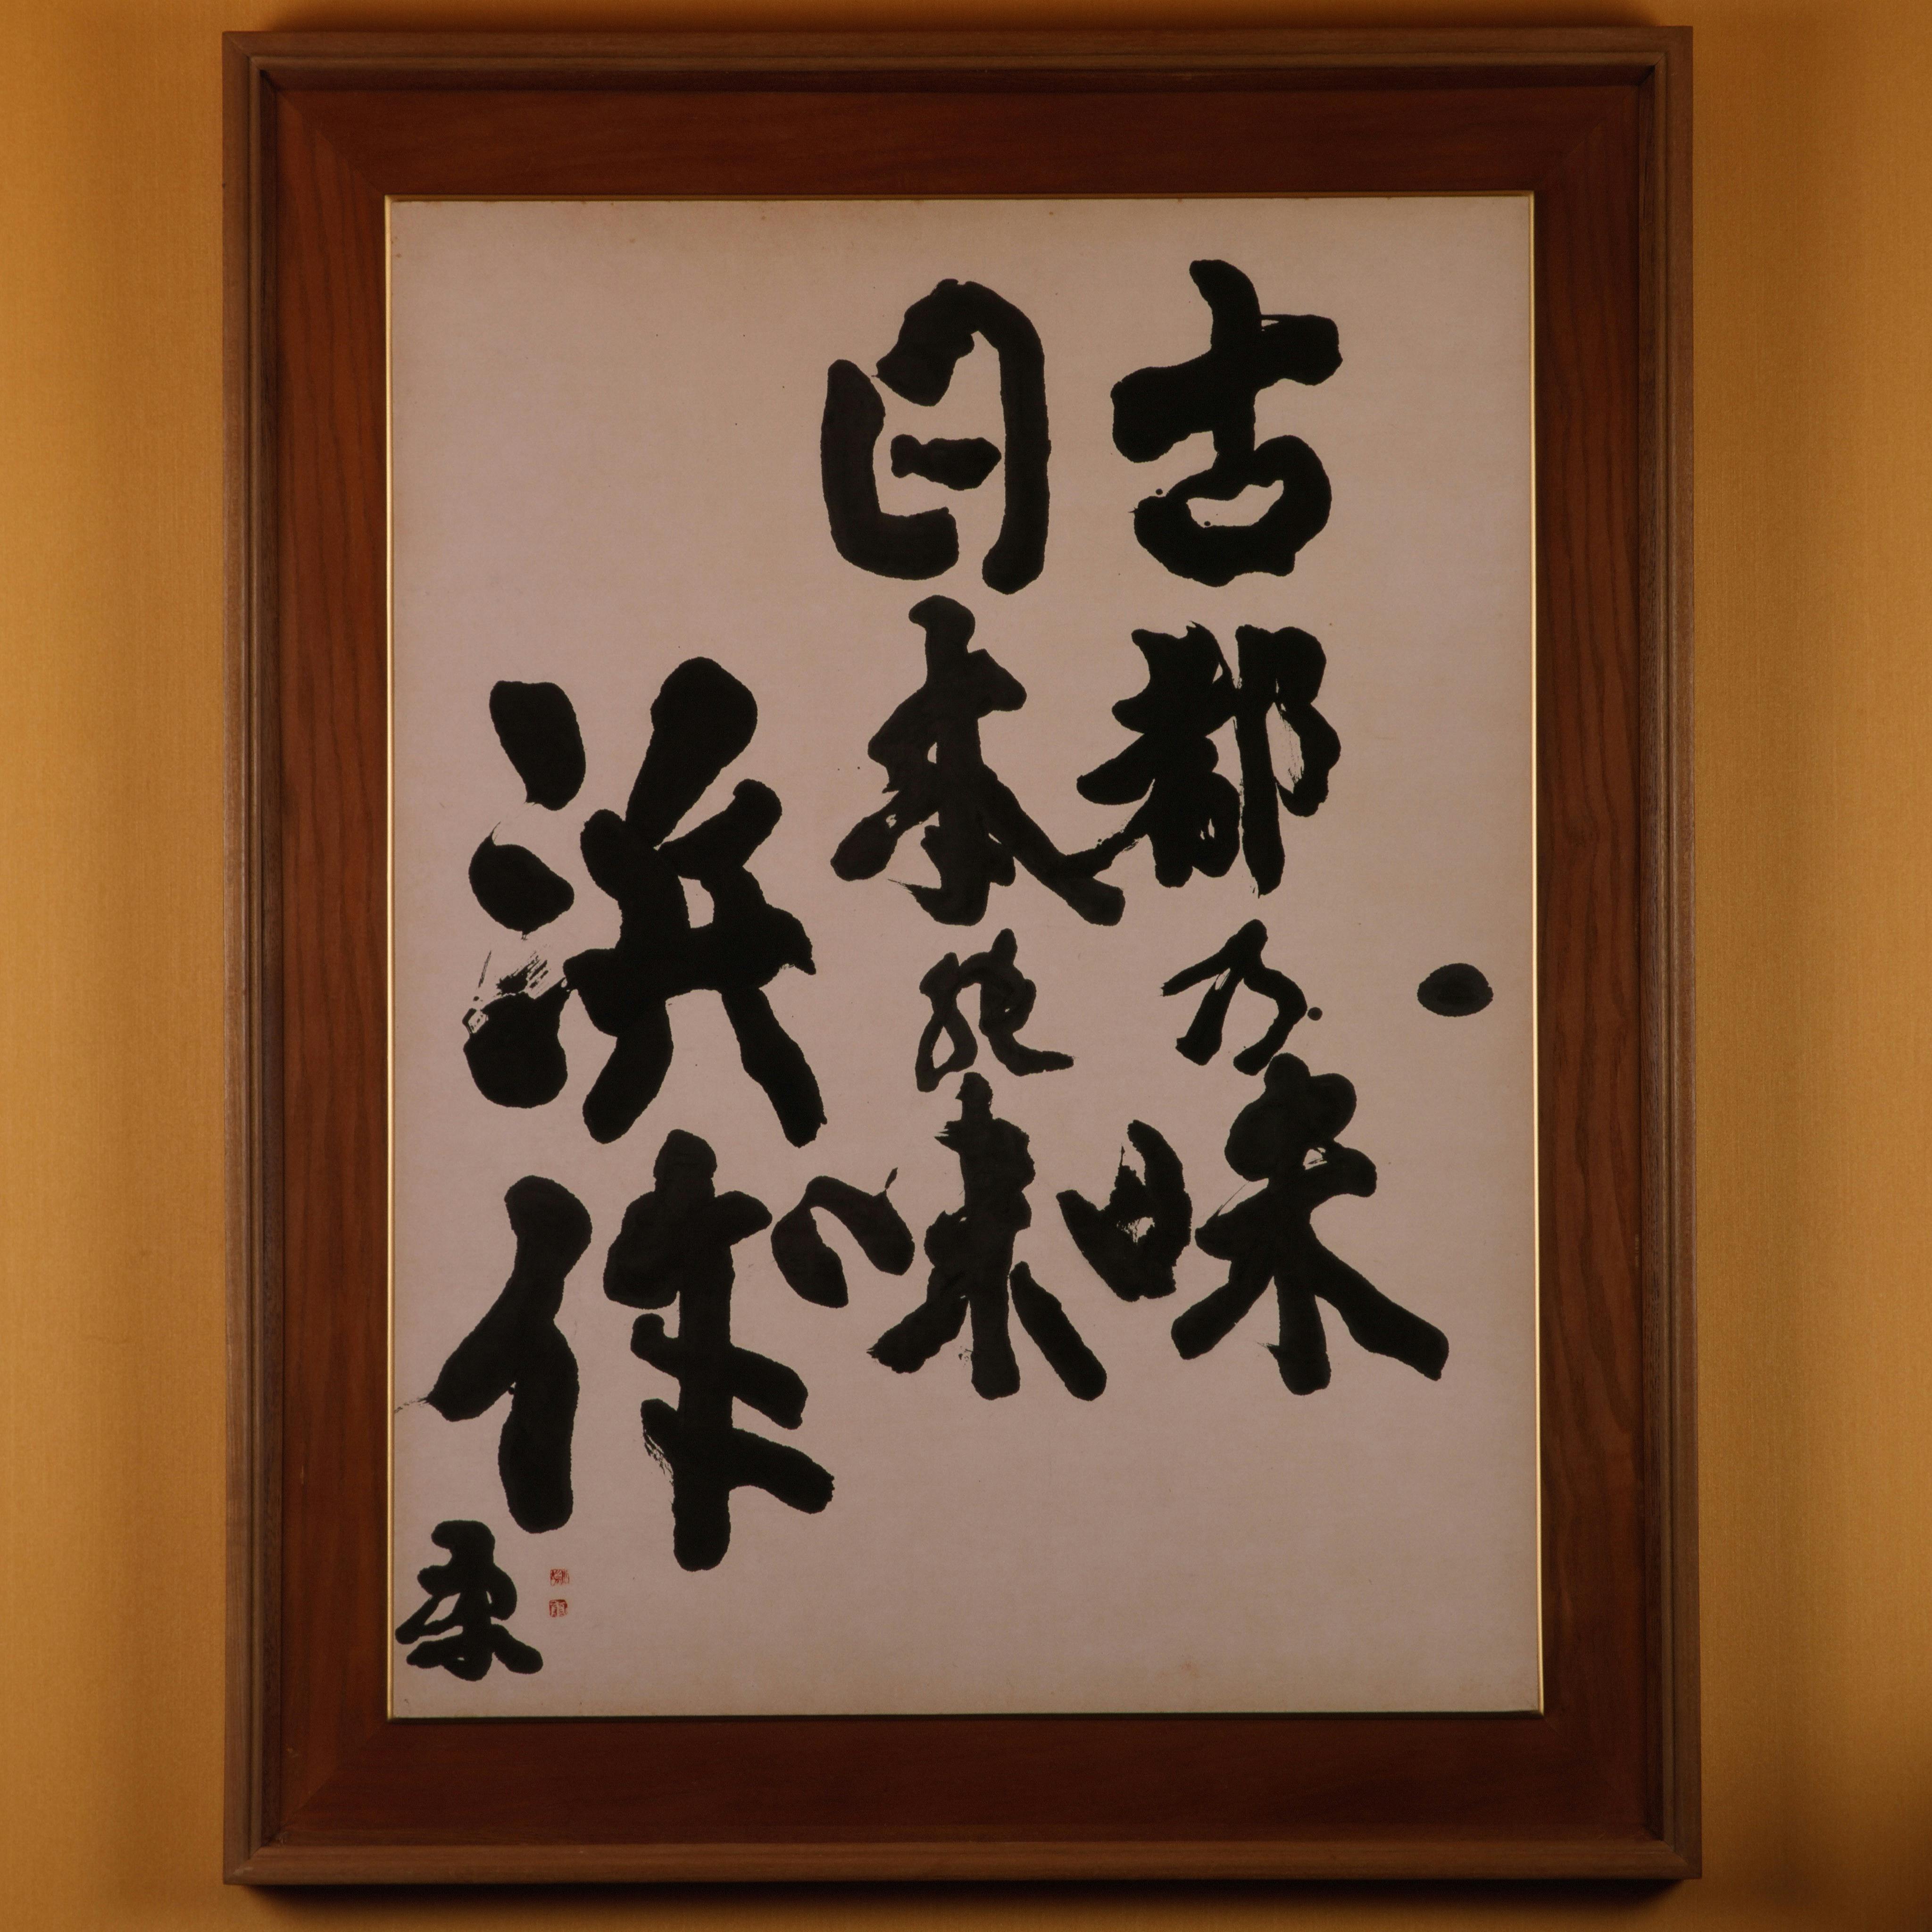 古都乃味
日本の味
浜作
康